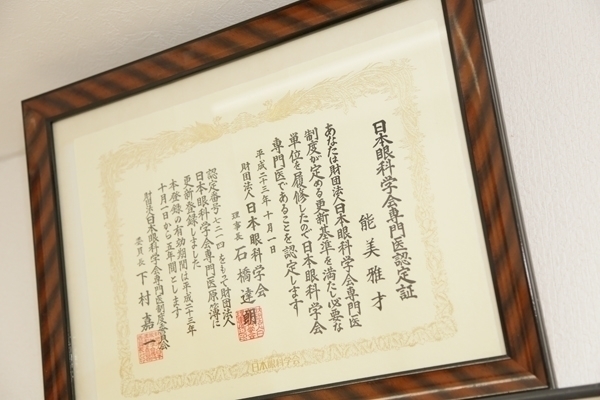 日本眼科学会専門医認定証
能美雅才
あなたは財団法人日本眼科学会専門医
制度が定める更新基準を満たし必要な
単位を履修したので日本眼科学会
専門医であることを認定します
平成二十三年十月一日
財団法人日本眼科学会
理事長 石橋達朗
認定番号七二一四をもつ財団法人
日本眼科学会専門医原簿に
更新登録しました
本登録の有効期間は平成二十三年
十月一日から五年間とします
財団法人日本眼科学会専門医制度委員会
委員長 下村嘉一
日本眼科学会